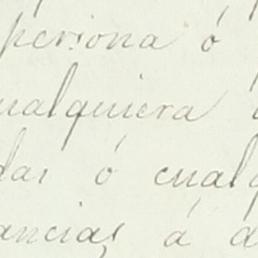 persona ó
ualquiera
das ó cualq
ancias á a